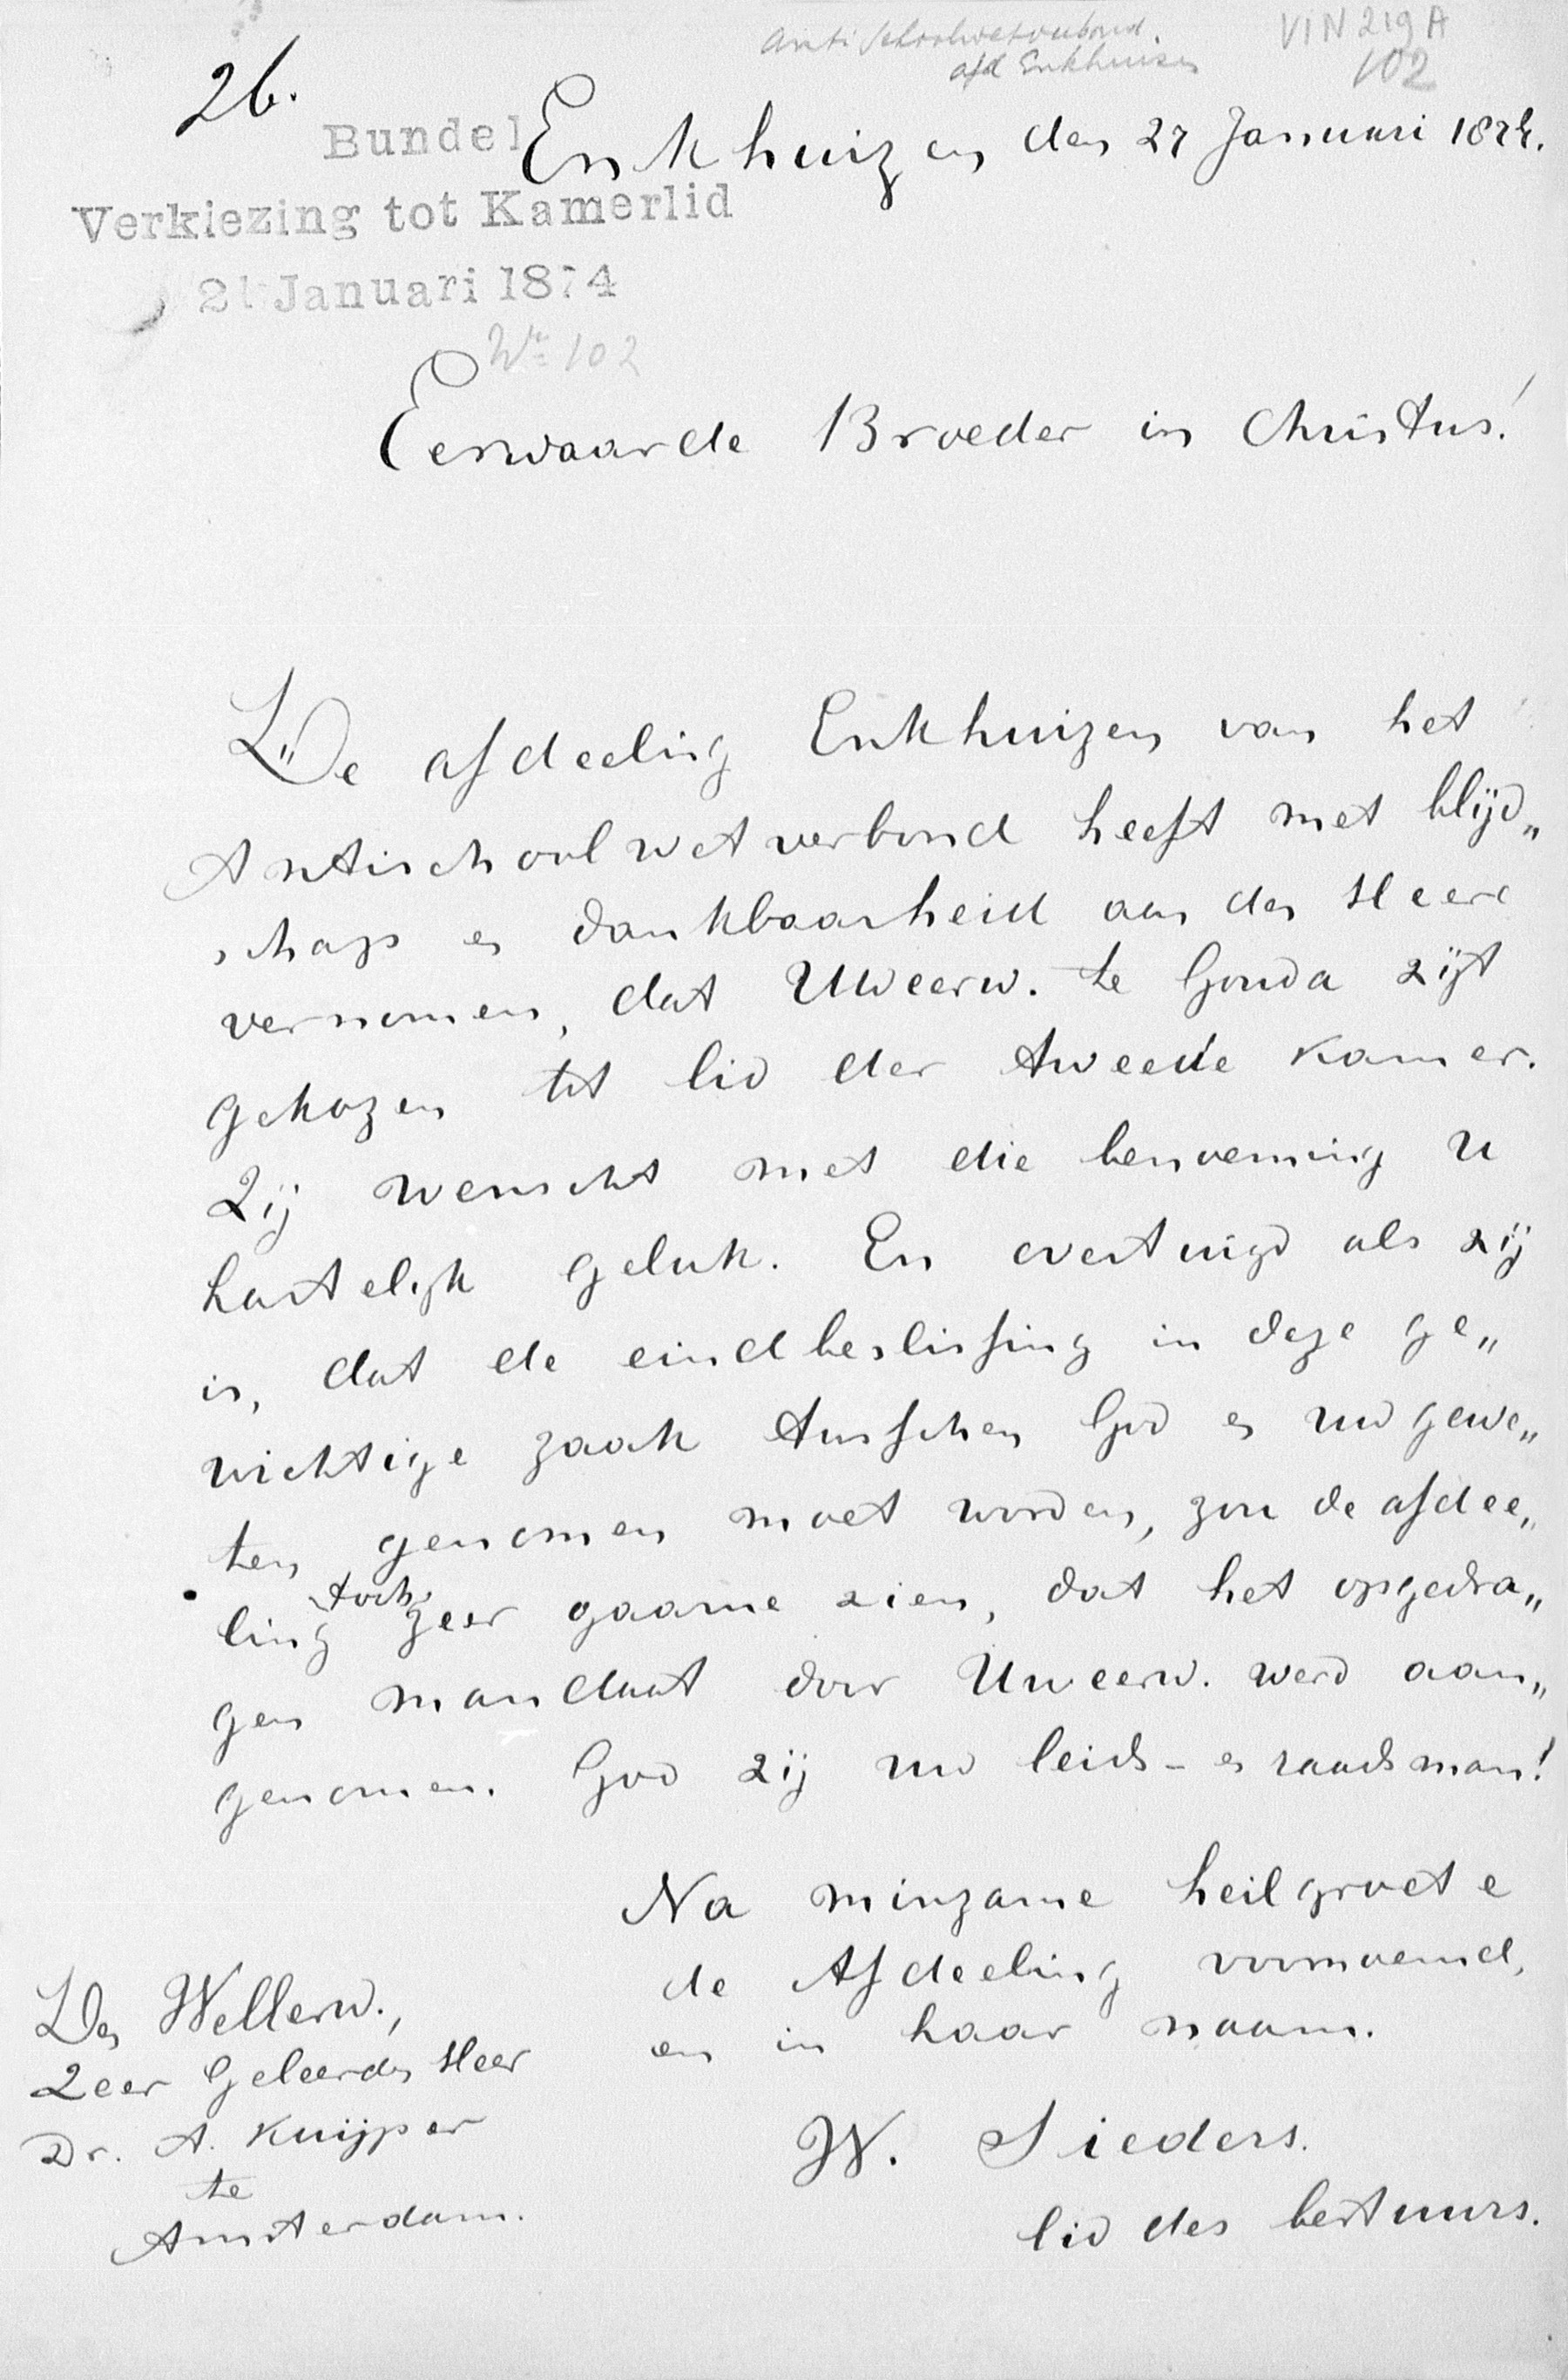 Anti schoolwetverbond.
afd Enkhuizen
VIN 219 A
102
26.
Bundel
Enkhuizen den 27 Januari 1874.
Verkiezing tot Kamerlid
21 Januari 1874
No 102
Eerwaarde Broeder in Christus!
De afdeeling Enkhuizen van het
Antischoolwetverbond heeft met blijd„
schap en dankbaarheid aan den Heere
vernomen, dat UwEerw. te Gouda zijt
gekozen tot lid der tweede kamer.
Zij wenscht met die benoeming U
hartelijk geluk. En overtuigd als zij
is, dat de eindbeslissing in deze ge„
wichtige zaak tusschen God en uw gewe„
ten genomen moet worden, zou de afdee„
ling toch zeer gaarne zien, dat het opgedra„
gen mandaat door UwEerw. werd aan„
genomen. God zij uw leids- en raadsman!
Na minzame heilgroete
de Afdeeling voornoemd,
en in haar naam.
W. Sieders.
lid des bestuurs.
Den WelEerw.,
Zeer Geleerden Heer
Dr. A. Kuijper
te
Amsterdam.